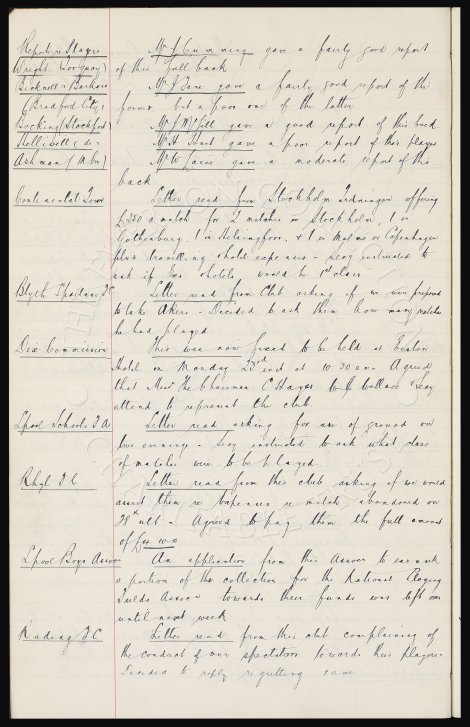 Report re Players Mr J Cumming gave a fairly good report
Wright (Torquay) of this full back
Bicknell & Barkass Mr J Dare gave a fairly good report of the
(Bradford City) former, but a poor one of the latter
Hocking (Stockport) Mr J McGill gave a good report of this back
Helliwell ( do Mr H Hart gave a poor report of this player
Ashman (M Bro) Mr W Laird gave a moderate report of this
back
Continental Tour Letter read from Stockholm Tidningen offering
£250 a match for 2 matches in Stockholm, 1 in
Gothenburg, 1 in Helsingfors, & 1 in Malmo or Copenhagen
plus travelling & hotel expenses - Secy instructed to
ask if hotels would be 1st class
Blyth Spartans FC Letter read from Club asking if we were prepared
to take Akers - Decided to ask them how many matches
he had played
Dix Commission This was now fixed to be held at Euston
Hotel on Monday 23rd inst at 10 30 am Agreed
that Mess The Chairman, C Hayes & Wallace & Secy
attend to represent the club.
Lpool Schools F A Letter read asking for use of ground on
five evenings - Secy instructed to ask what class
of matches were to be played.
Rhyl F C Letter read from this club asking if we would
assist them re expenses re match abandoned on
28th ult - Agreed to pay them the full amount
of
Lpool Boys Assocn An application from this Assocn to earmark
a portion of the collection for the National Playing
Fields Assocn towards their funds was left over
until next week
Reading F C Letter read from this club complaining of
the conduct of our spectators towards their players
Decided to reply regretting same